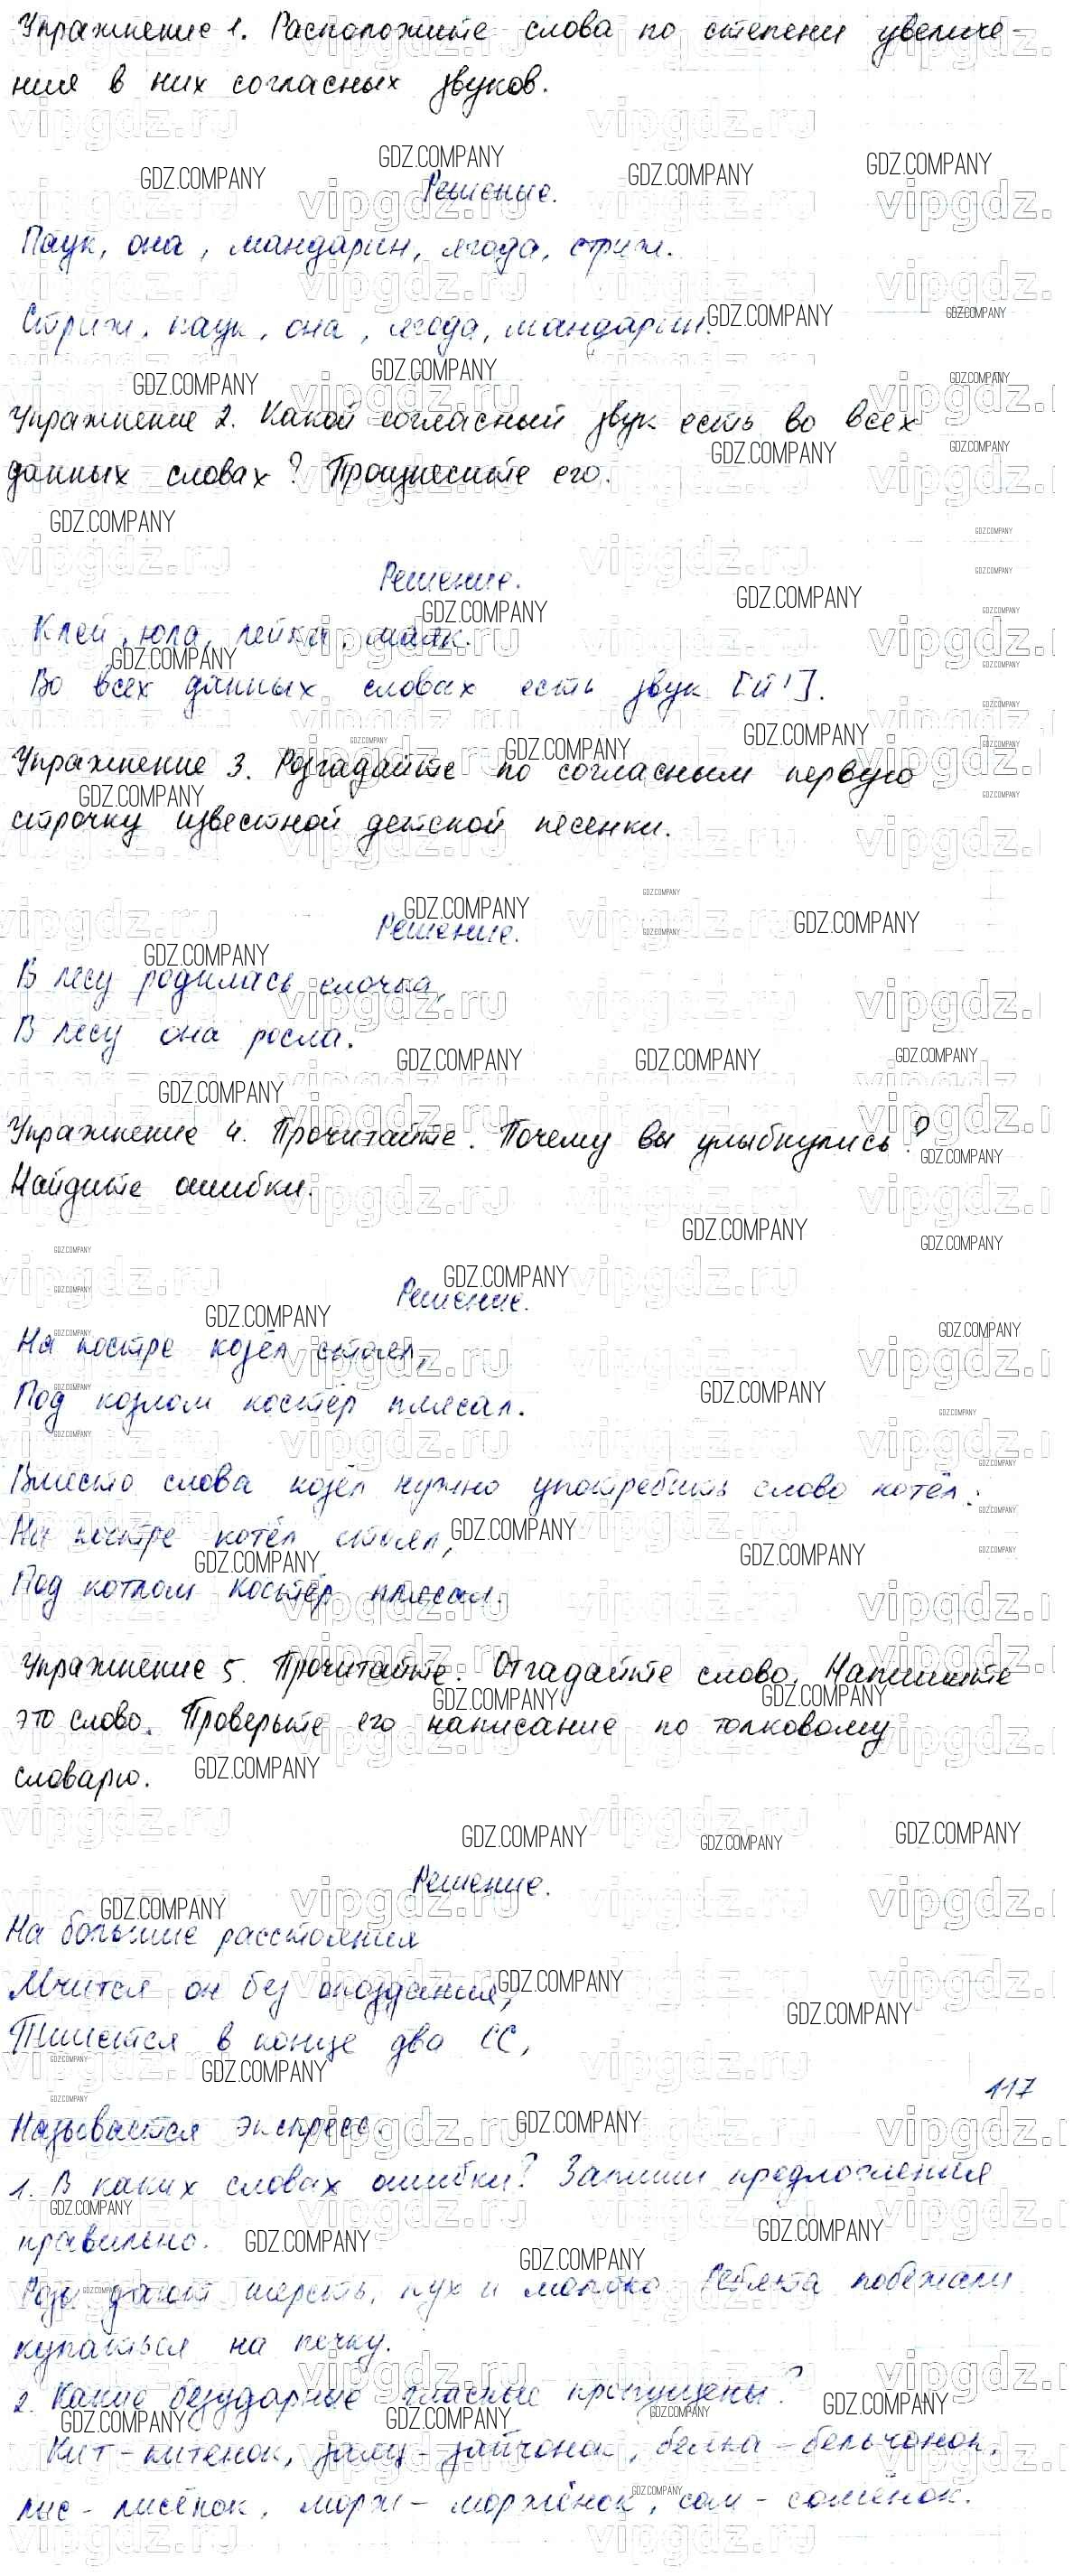 Упражнение 1. Расположите слова по степени увеличе-
ния в них согласных звуков.
Решение.
Паук, она, мандарин, ягода, стриж.
Стриж, паук, она, ягода, мандарин.
Упражнение 2. Какой согласный звук есть во всех
данных словах? Произнесите его.
Решение.
Клей, юла, лейка, маяк.
Во всех данных словах есть звук [й'].
Упражнение 3. Розгадайте по согласным первую
строчку известной детской песенки.
Решение.
В лесу родилась елочка,
В лесу она росла.
Упражнение 4. Прочитайте. Почему вы улыбнулись?
Найдите ошибки.
Решение.
На костре козёл стоял,
Под козлом костёр плясал.
Вместо слова козёл нужно употребить слово котёл:
На костре котёл стоял,
Под котлом костёр плясал.
Упражнение 5. Прочитайте. Отгадайте слово. Напишите
это слово. Проверьте его написание по толковому
словарю.
Решение.
На большие расстояния
Мчится он без опоздания,
Пишется в конце два СС,
117
Называется экспресс.
1. В каких словах ошибки? Запиши предложения
правильно.
Розы дают шерсть, пух и молоко. Ребята побежали
купаться на печку.
2. Какие безударные гласные пропущены?
Кит - китенок, заяц - зайчонок, белка - бельчонок,
лис - лисёнок, морж - моржонок, сом - сомёнок.